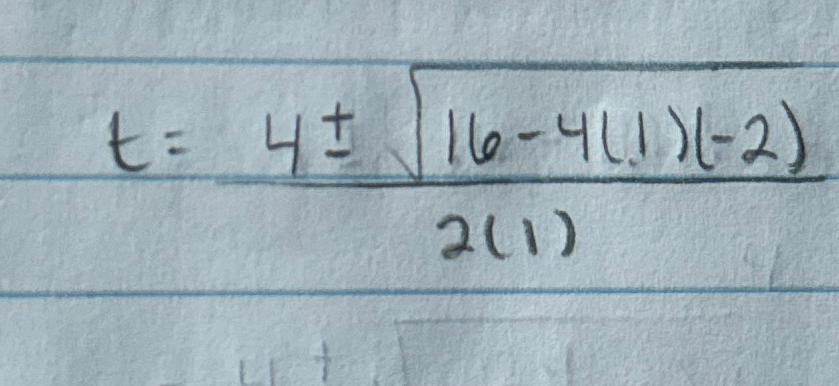 t = 4 ± √16 - 4(1)(-2)
2(1)
4 ±